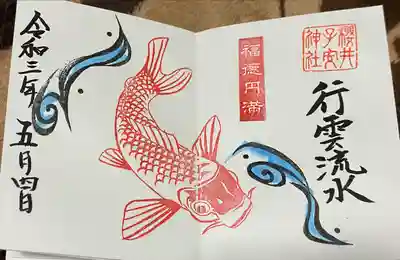 櫻井
子安
神社
行雲流水
福徳円満
令和三年 五月四日